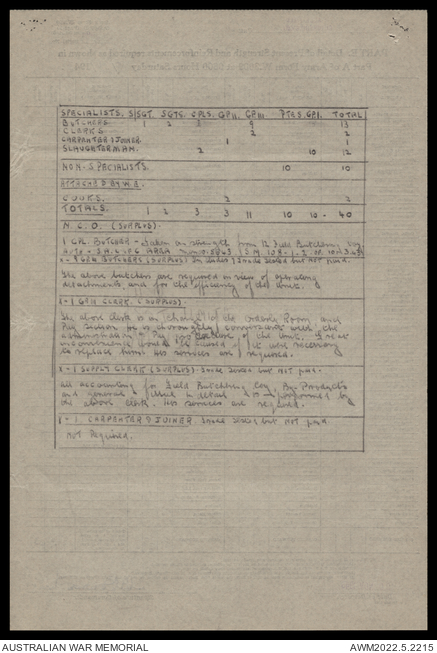 SPECIALISTS. S/SGT. SGTS. CPLS. GPII. GPIII PTES. GPI. TOTAL
BUTCHERS 1 2 3 9 13
CLERKS 2 2
CARPENTER & JOINER 1 1
SLAUGHTERMAN. 2 10 12
NON-SPECIALISTS. 10 10
ATTACHED BY W.E.
COOKS. 2 2
TOTALS. 1 2 3 3 11 10 10 - 40
N.C.O. (SURPLUS).
1 CPL. BUTCHER - taken on strength from 12 Field Butchery Coy
BUTCHERS (SURPLUS) Trade tested but not paid.
The above butchers are required in view of operating
detachments, and for the efficiency of the unit.
1 GPII CLERK (SURPLUS).
The above clerk is in charge of the Orderly Room and
Pay Section he is thoroughly conversant with the
administration & Pay of the Unit. Great
inconvenience would be caused if it was necessary
to replace him. His services are required.
1 SUPPLY CLERK (SURPLUS). Trade tested but not paid.
All accounting for Field Butchery Coy, By-Products
and general issue in detail is performed by
the above clerk. His services are required.
1. CARPENTER & JOINER Trade tested but not paid.
Not Required.
AUSTRALIAN WAR MEMORIAL
AWM2022.5.2215